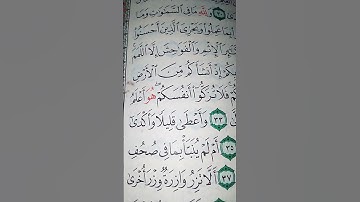 وَلِلَّهِ مَا فِي السَّمَٰوَٰتِ وَمَا
بِمَا عَمِلُوا۟ وَيَجْزِيَ الَّذِينَ أَحْسَنُوا۟
الْإِثْمِ وَالْفَوَٰحِشَ إِلَّا اللَّمَمَ
إِذْ أَنشَأَكُم مِّنَ الْأَرْضِ
فَلَا تُزَكُّوٓا۟ أَنفُسَكُمْ ۖ هُوَ أَعْلَمُ
٣٣ وَأَعْطَىٰ قَلِيلًا وَأَكْدَىٰٓ
٣٥ أَمْ لَمْ يُنَبَّأْ بِمَا فِي صُحُفِ
٣٧ أَلَّا تَزِرُ وَازِرَةٌ وِزْرَ أُخْرَىٰ